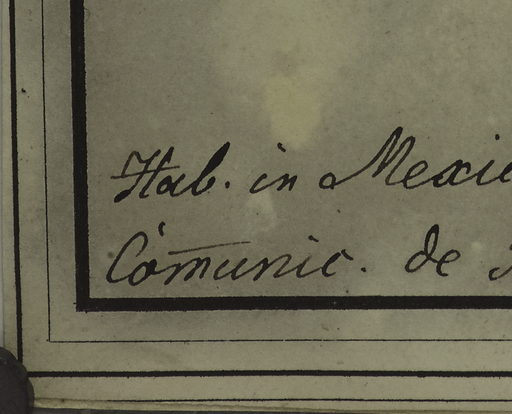 Hab. in Mexic
Co̅munic. de